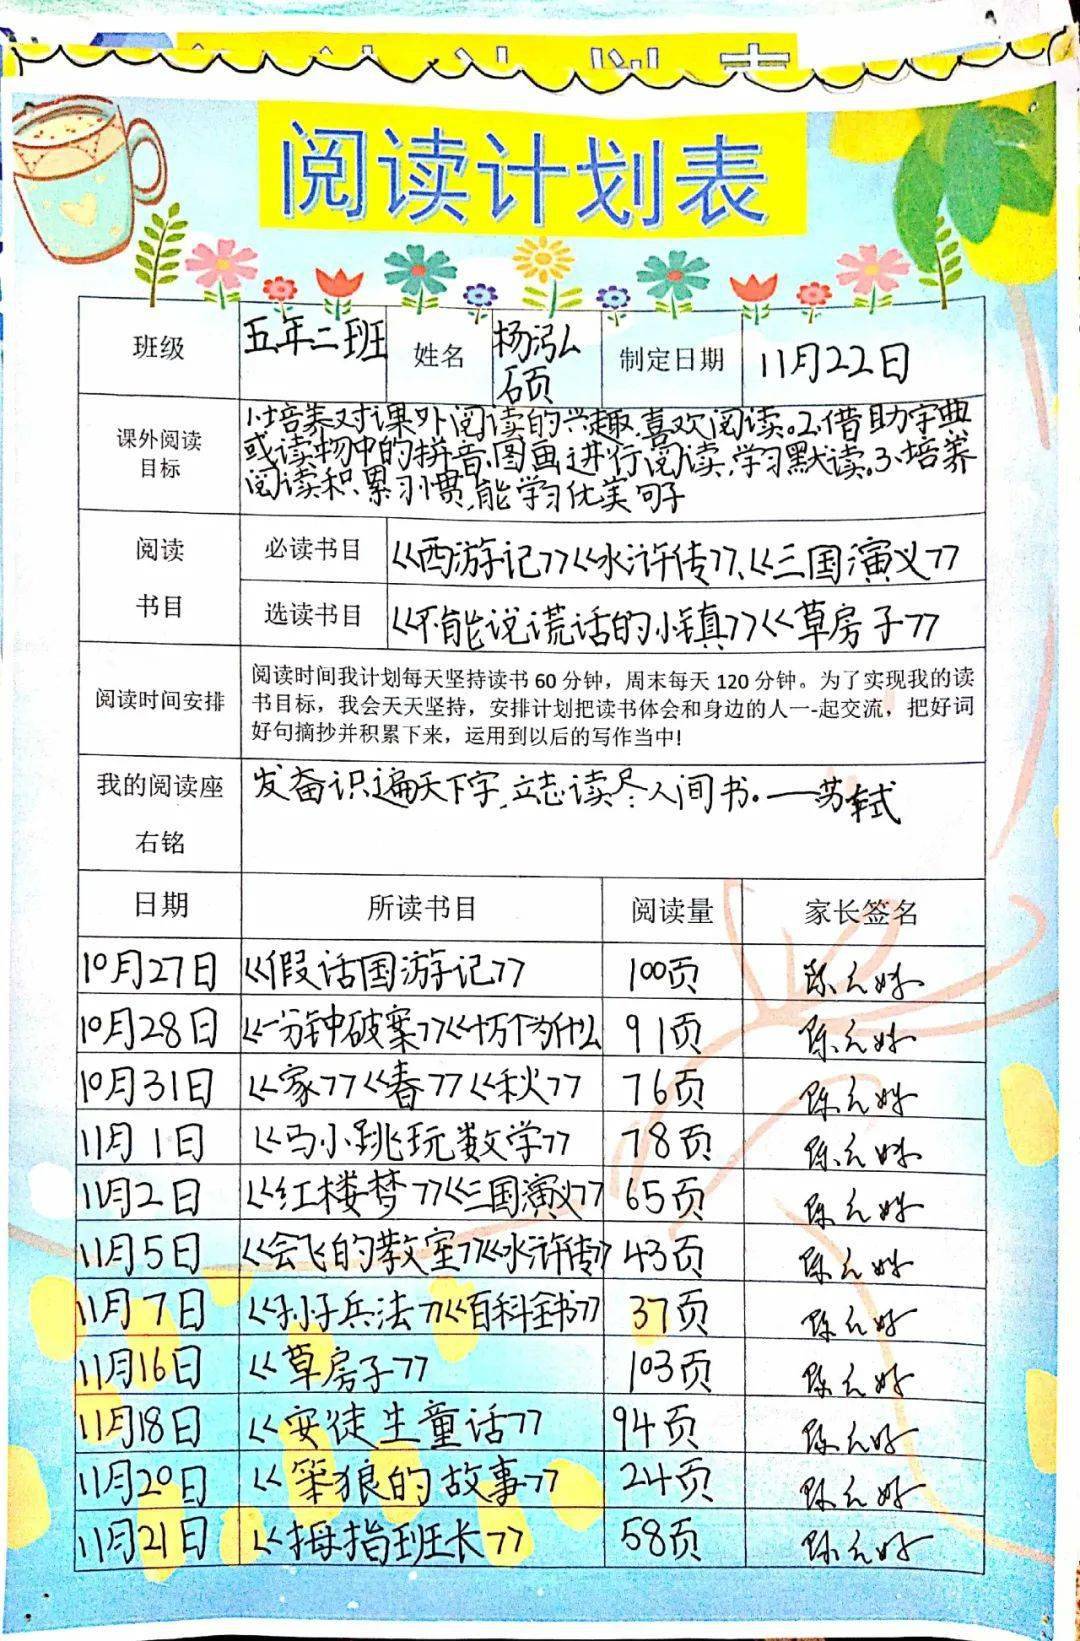 阅读计划表
班级 五年二班 姓名 杨泓硕 制定日期 11月22日
课外阅读目标
1.培养对课外阅读的兴趣,喜欢阅读。2.借助字典
或读物中的拼音、图画进行阅读,学习默读。3.培养
阅读积累习惯,能学习优美句子
阅读书目
必读书目 《西游记》《水浒传》、《三国演义》
选读书目 《不能说谎话的小镇》《草房子》
阅读时间安排
阅读时间我计划每天坚持读书60分钟，周末每天120分钟。为了实现我的读
书目标，我会天天坚持，安排计划把读书体会和身边的人一-起交流，把好词
好句摘抄并积累下来，运用到以后的写作当中!
我的阅读座右铭
发奋识遍天下字,立志读尽人间书。——苏轼
日期 所读书目 阅读量 家长签名
10月27日 《假话国游记》 100页
10月28日 《一分钟破案》《十万个为什么 91页
10月31日 《家》《春》《秋》 76页
11月1日 《马小跳玩数学》 78页
11月2日 《红楼梦》《三国演义》 65页
11月5日 《会飞的教室》《水浒传》 43页
11月7日 《孙子兵法》《百科全书》 37页
11月16日 《草房子》 103页
11月18日 《安徒生童话》 94页
11月20日 《笨狼的故事》 24页
11月21日 《拇指班长》 58页